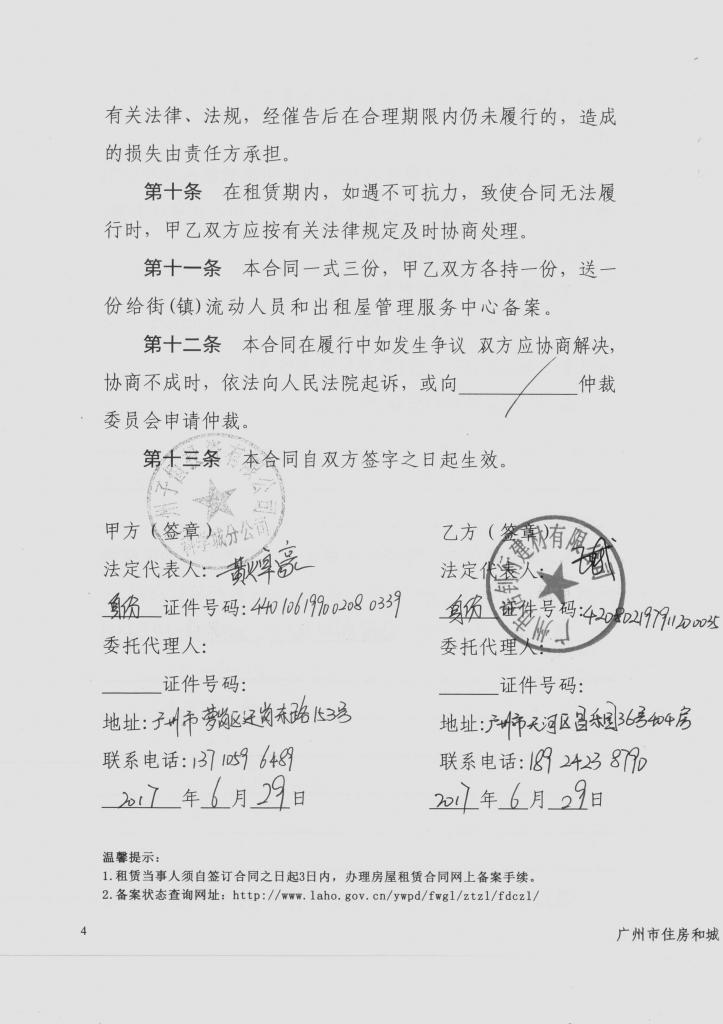 有关法律、法规，经催告后在合理期限内仍未履行的，造成
的损失由责任方承担。
第十条 在租赁期内，如遇不可抗力，致使合同无法履
行时，甲乙双方应按有关法律规定及时协商处理。
第十一条 本合同一式三份，甲乙双方各持一份，送一
份给街(镇)流动人员和出租屋管理服务中心备案。
第十二条 本合同在履行中如发生争议 双方应协商解决，
协商不成时，依法向人民法院起诉，或向________仲裁
委员会申请仲裁。
第十三条 本合同自双方签字之日起生效。
科学城分公司
甲方（签章）
法定代表人：黄卓豪
身份 证件号码：440106199002080339
委托代理人：
______证件号码：
地址：广州市萝岗区 岗东路153号
联系电话：137 1059 6489
2017 年 6 月 29 日
乙方（签章）
建材有限
广州市
法定代表人：
身份 证件号码：420802197911200035
委托代理人：
______证件号码：
地址：广州市天河区昌乐园36号404房
联系电话：189 2423 8790
2017 年 6 月 29 日
温馨提示：
1.租赁当事人须自签订合同之日起3日内，办理房屋租赁合同网上备案手续。
2.备案状态查询网址：http://www.laho.gov.cn/ywpd/fwgl/ztzl/fdczl/
4
广州市住房和城